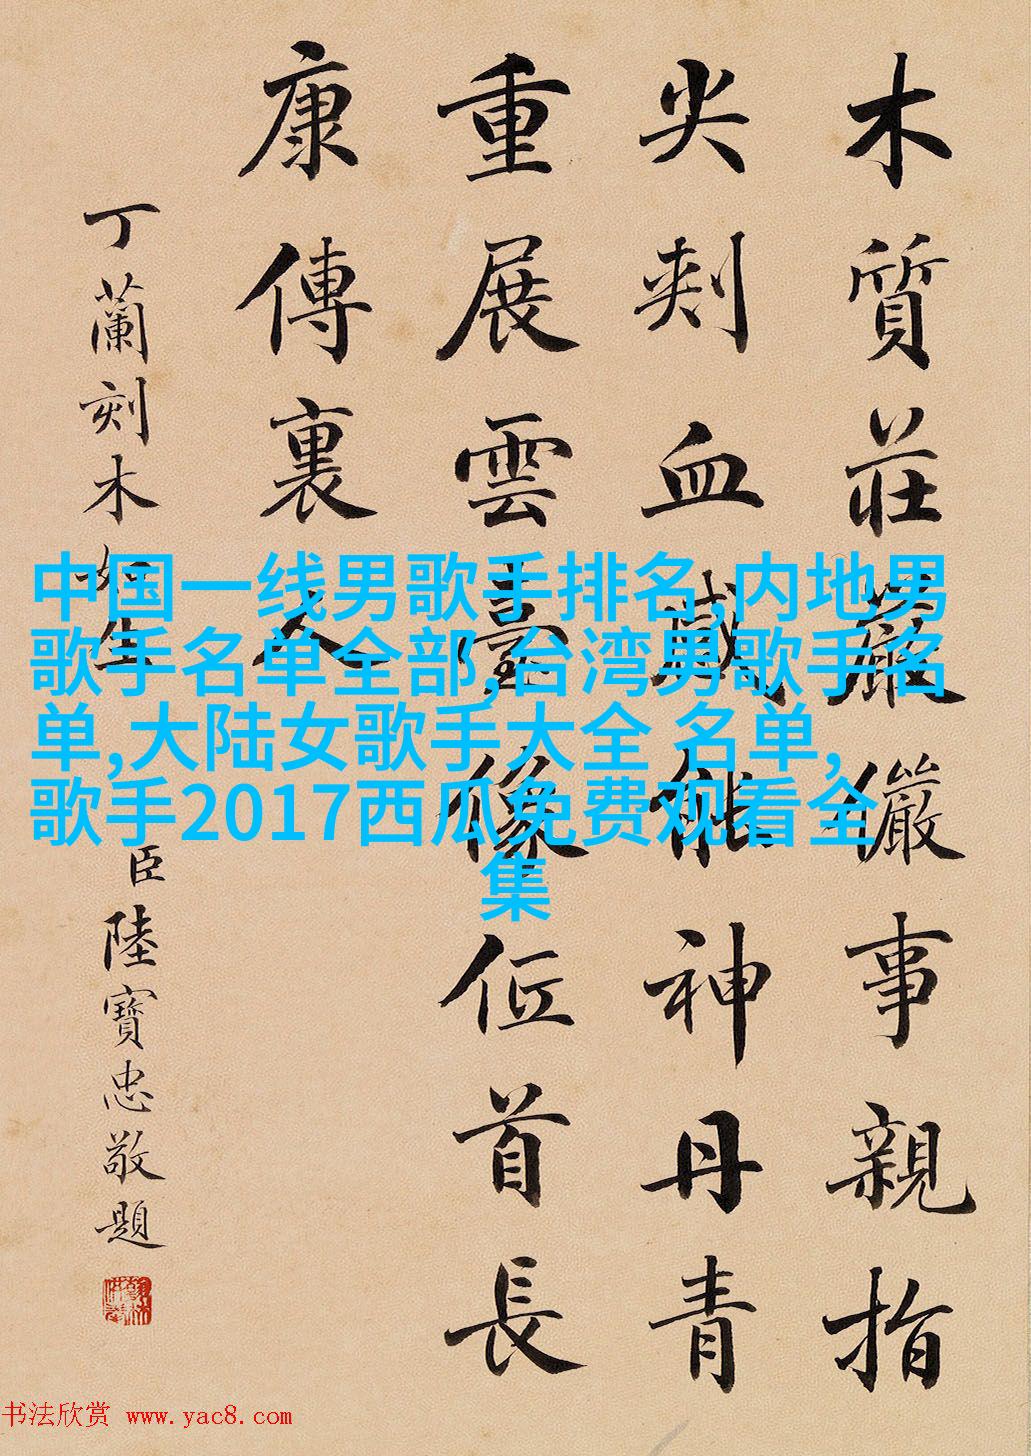 木質莊嚴儼事親指
尖刺血感能神丹青
重展雲臺像首長
康傳裏人
丁蘭刻木如生
臣陸寶忠敬題
中国一线男歌手排名,内地男
歌手名单全部,台湾男歌手名
单,大陆女歌手大全 名单,
歌手2017西瓜免费观看全
集
书法欣赏 www.yac8.com